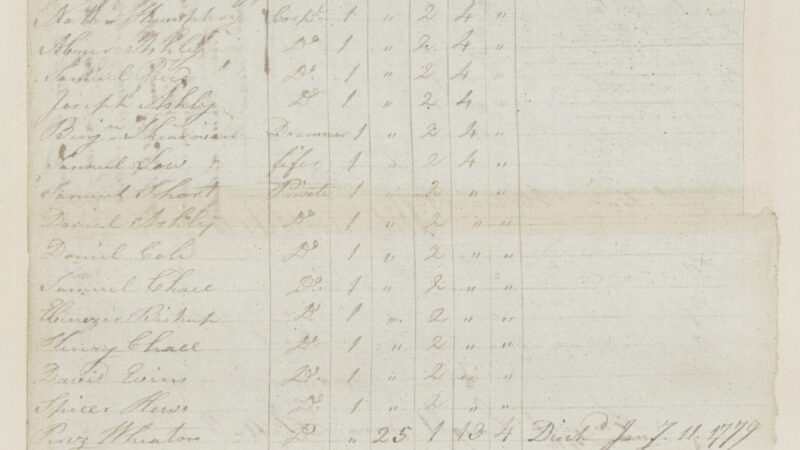 Nath.l Humphry Corp.l 1 " 2 4 "
Abner Ashley D.o 1 " 2 4 "
Samuel D.o 1 " 2 4 "
Joseph Ashley D.o 1 " 2 4 "
Benj.n Shearman Drummer 1 " 2 4 "
Samuel Low fifer 1 " 2 4 "
Samuel Private 1 " 2 " "
Daniel Ashley D.o 1 " 2 " "
Daniel Cole D.o 1 " 2 " "
Samuel Chace D.o 1 " 2 " "
Ebenezer Bishop D.o 1 " 2 " "
Henry Chace D.o 1 " 2 " "
David Evins D.o 1 " 2 " "
Spicer Hews D.o 1 " 2 " "
Perez Wheaton D.o " 25 1 13 4 Disch.d Jan.y 11. 1779